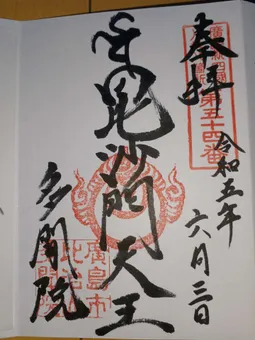 奉拝
第五十四番
令和五年
六月三日
毘沙門天王
廣島市
比治山
多聞院